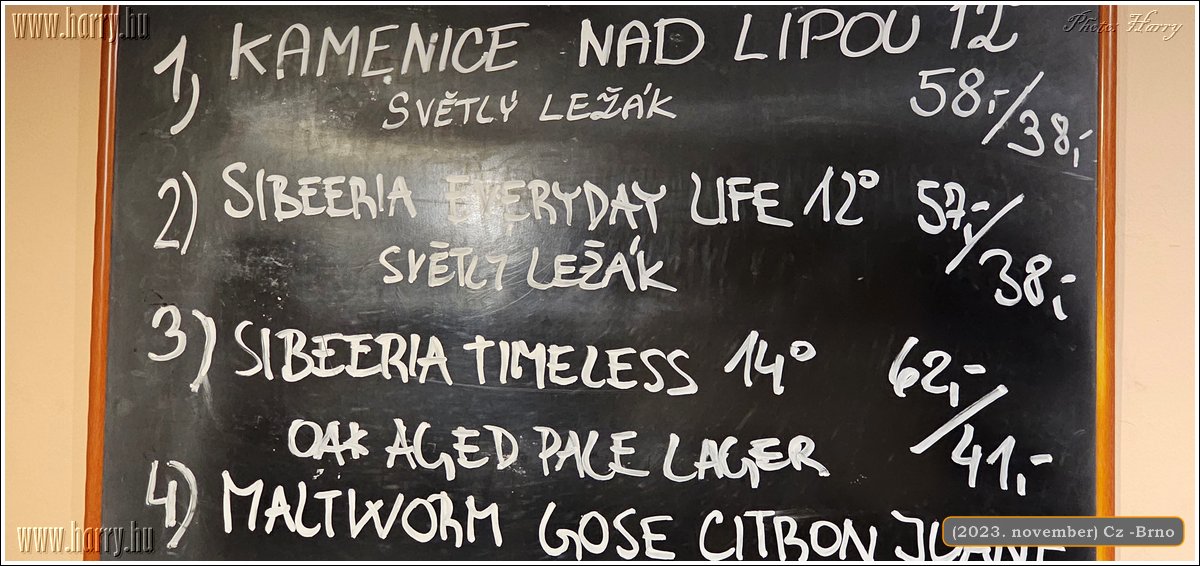 www.harry.hu
Photo: Harry
1) KAMENICE NAD LIPOU 12°
SVĚTLÝ LEŽÁK
58,-/38,-
2) SIBEERIA EVERYDAY LIFE 12° 57,-/38,-
SVĚTLÝ LEŽÁK
3) SIBEERIA TIMELESS 14° 62,-/41,-
OAK AGED PALE LAGER
4) MALTWORM GOSE CITRON
www.harry.hu
(2023. november) Cz -Brno